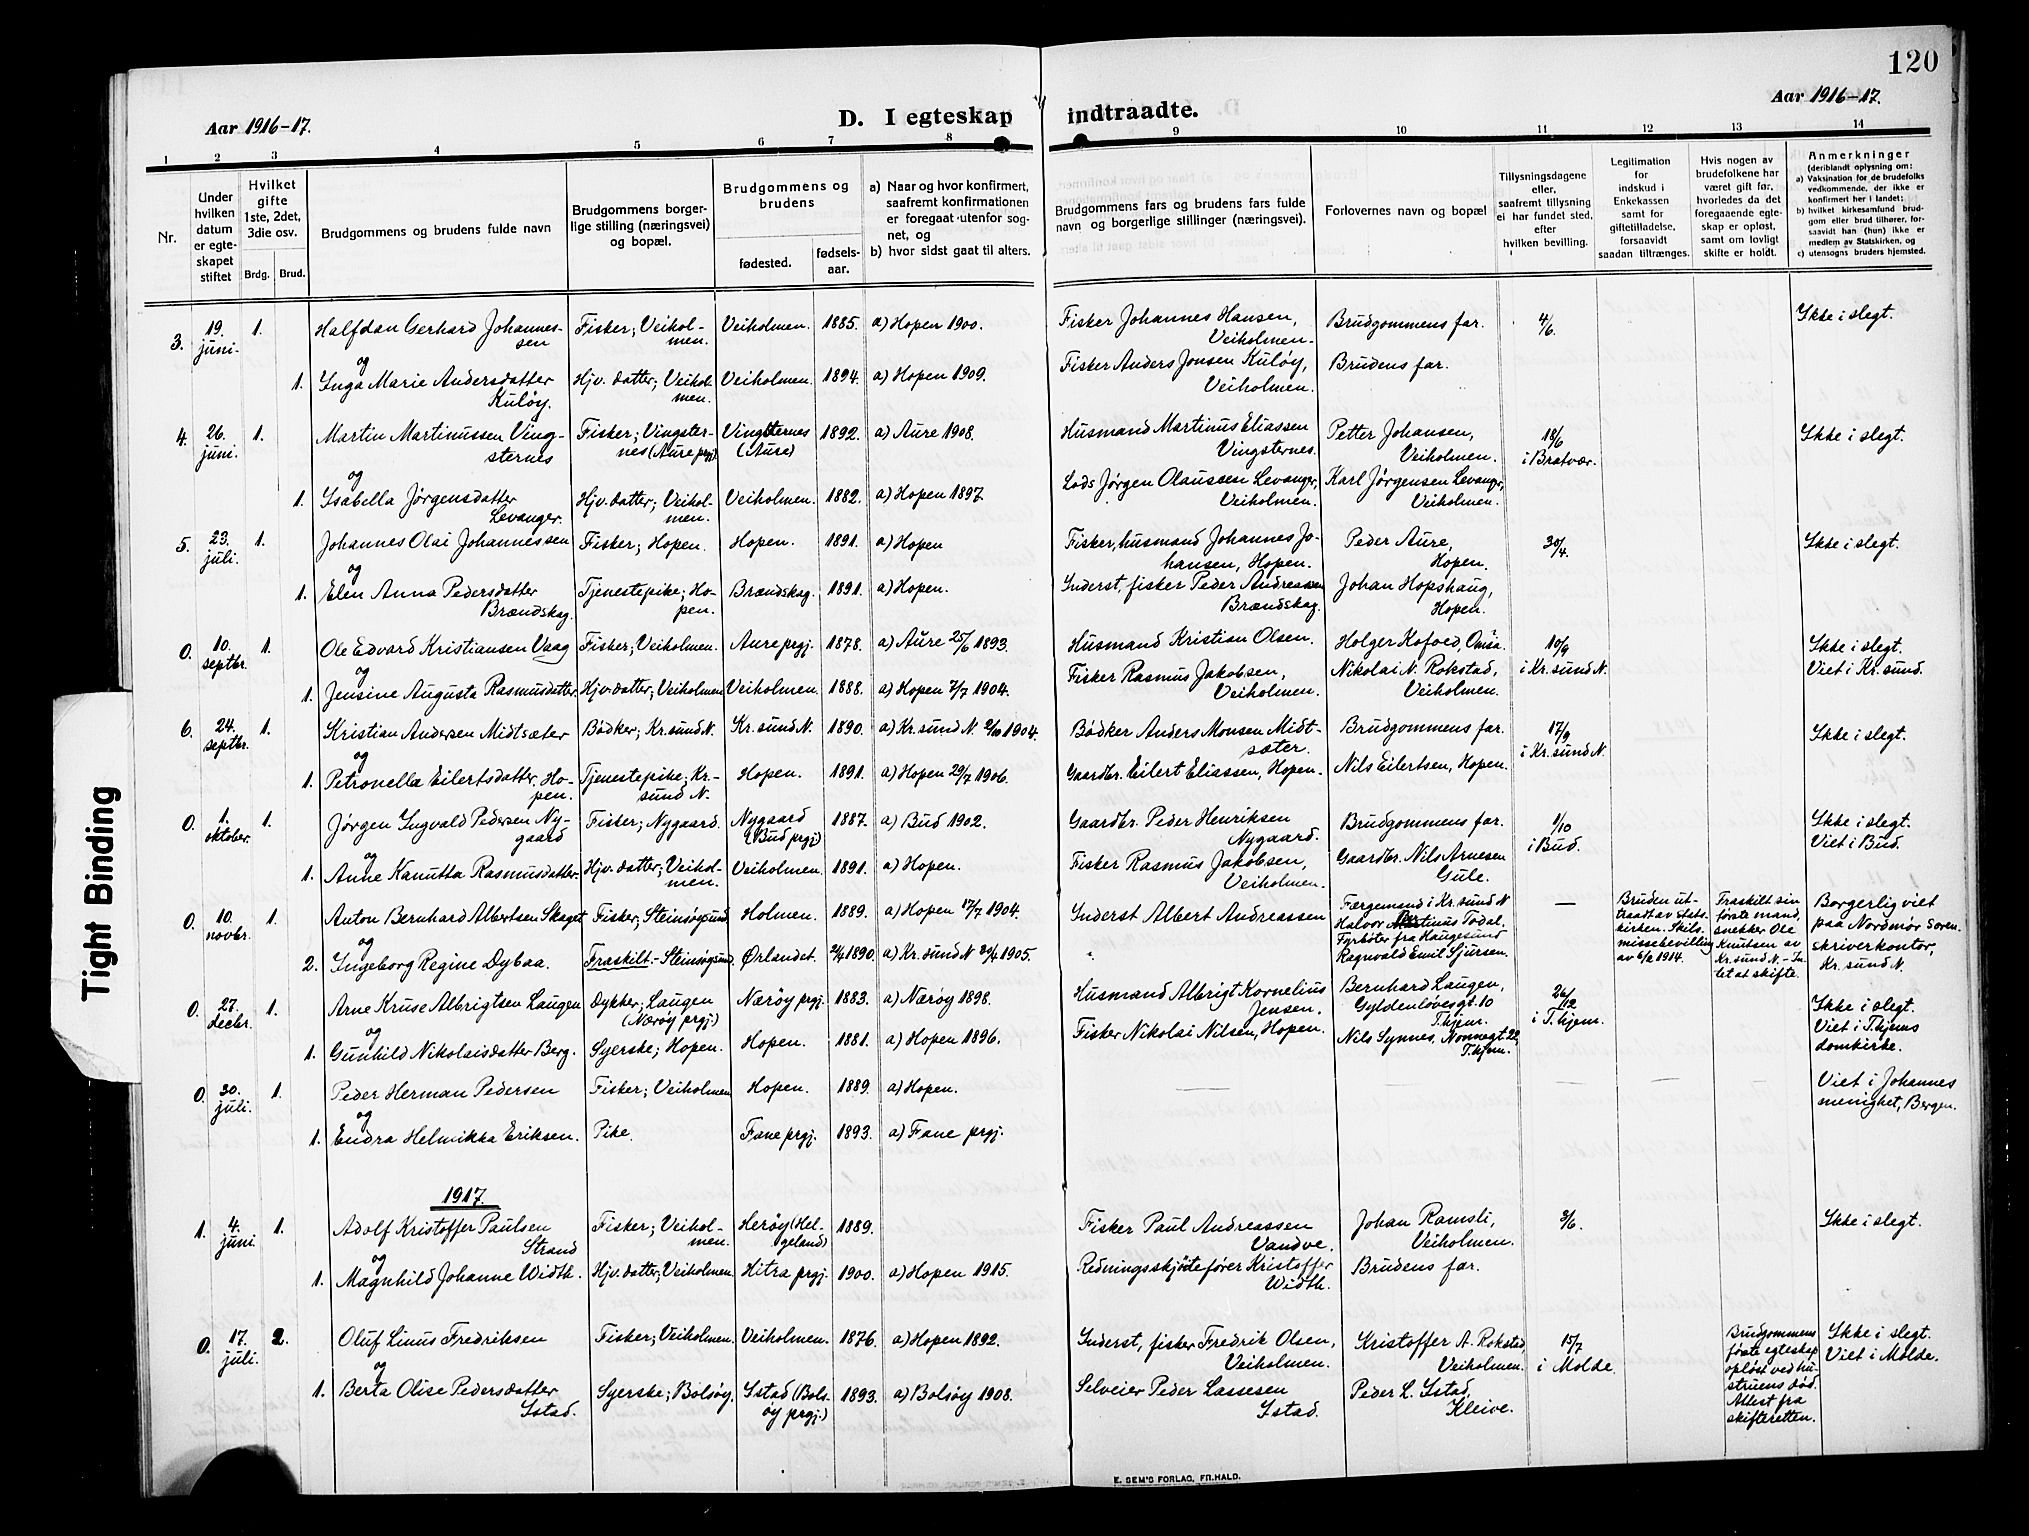 120
Aar 1916-17.
D. I egteskap indtraadte.
Aar 1916-17.
1 2 3 4 5 6 7 8 9 10 11 12 13 14
Nr.
Under
hvilken
datum
er egte-
skapet
stiftet
Hvilket
gifte
1ste, 2det,
3die osv.
Brdg. Brud.
Brudgommens og brudens fulde navn
Brudgommens borger-
lige stilling (næringsvei)
og bopæl.
Brudgommens og
brudens
fødested.
fødsels-
aar.
a) Naar og hvor konfirmert,
saafremt konfirmationen
er foregaat utenfor sog-
net, og
b) hvor sidst gaat til alters.
Brudgommens fars og brudens fars fulde
navn og borgerlige stillinger (næringsvei).
Forlovernes navn og bopæl
Tillysningsdagene
eller,
saafremt tillysning
ei har fundet sted,
efter
hvilken bevilling.
Legitimation
for
indskud i
Enkekassen
samt for
giftetilladelse,
forsaavidt
saadan tiltrænges.
Hvis nogen av
brudefolkene har
været gift før,
hvorledes da det
foregaaende egte-
skap er opløst,
samt om lovligt
skifte er holdt.
Anmerkninger
(deriblandt oplysning om:
a) Vaksination for de brudefolks
vedkommende, der ikke er
konfirmert her i landet;
b) hvilket kirkesamfund brud-
gom eller brud tilhører, for-
saavidt han (hun) ikke er
medlem av Statskirken, og
c) utensogns bruders hjemsted.
3. 19. juni. 1. Halfdan Gerhard Johannes-
sen
Fisker; Veihol-
men.
Veiholmen. 1885. a) Hopen 1900.
Fisker Johannes Hansen,
Veiholmen.
Brudgommens far. 4/6. Ikke i slegt.
og
1. Inga Marie Andersdatter
Kuløy.
Hjv. datter; Veihol-
men.
Veiholmen. 1894. a) Hopen 1909.
Fisker Anders Jonsen Kuløy,
Veiholmen.
Brudens far.
4. 26. juni. 1. Martin Martinussen Ving-
sternes
Fisker; Vingster-
nes (Aure prgj.)
Vingsternes
(Aure)
1892. a) Aure 1908.
Husmand Martinus Eliassen
Vingsternes.
Petter Johansen,
Veiholmen.
18/6
i Bratvær.
Ikke i slegt.
og
1. Isabella Jørgensdatter
Levanger.
Hjv. datter; Veihol-
men.
Veiholmen. 1882. a) Hopen 1897.
Lods Jørgen Olaussen Levanger,
Veiholmen.
Karl Jørgensen Levanger,
Veiholmen.
5. 23. juli. 1. Johannes Olai Johannessen
Fisker; Hopen. Hopen. 1891. a) Hopen
Fisker, husmand Johannes Jo-
hansen, Hopen.
Peder Aure,
Hopen.
30/4. Ikke i slegt.
og
1. Elen Anna Pedersdatter
Brændskag.
Tjenestepike; Ho-
pen.
Brændskag. 1891. a) Hopen.
Inderst, fisker Peder Andreassen
Brændskag.
Johan Hopshaug,
Hopen.
0. 10. septbr. 1. Ole Edvard Kristiansen Vaag
Fisker; Veiholmen. Aure prgj. 1878. a) Aure 25/6 1893.
Husmand Kristian Olsen. Holger Kofoed, Omsa.
10/9
i Kr.sund N.
Ikke i slegt.
Viet i Kr.sund.
og
1. Jensine Augusta Rasmusdatter
Hjv. datter; Veiholmen Veiholmen. 1888. a) Hopen 7/7 1904.
Fisker Rasmus Jakobsen,
Veiholmen.
Nikolai N. Rokstad,
Veiholmen.
6. 24. septbr. 1. Kristian Andersen Midtsæter
Bødker; Kr.sund N. Kr.sund N. 1890. a) Kr.sund N. 2/10 1904.
Bødker Anders Monsen Midt-
sæter.
Brudgommens far.
17/9
i Kr.sund N.
Ikke i slegt.
og
1. Petronella Eilertsdatter Ho-
pen.
Tjenestepike; Kr.-
sund N.
Hopen. 1891. a) Hopen 29/7 1906.
Gaardbr. Eilert Eliassen, Hopen. Nils Eilertsen, Hopen.
0. 1. oktober. 1. Jørgen Ingvald Pedersen Ny-
gaard
Fisker; Nygaard. Nygaard
(Bud prgj.)
1887. a) Bud 1902.
Gaardbr. Peder Henriksen
Nygaard.
Brudgommens far.
1/10
i Bud.
Ikke i slegt.
Viet i Bud.
og
1. Anne Kanutta Rasmusdatter.
Hjv. datter; Veihol-
men.
Veiholmen. 1891. a) Hopen.
Fisker Rasmus Jakobsen,
Veiholmen.
Gaardbr. Nils Arnesen
Gule.
0. 10. novbr. 1. Anton Bernhard Albertsen Skaget
Fisker; Steinsøysund Holmen. 1889. a) Hopen 17/7 1904.
Inderst Albert Andreassen
Færgemand i Kr.sund N
Halvor Martinus Todal,
Fyrbøter fra Haugesund
Ragnvald Emil Sjursen.
—
Bruden ut-
traadt av stats-
kirken. Skils-
missebevilling
av 6/2 1914.
Fraskilt sin
første mand,
snekker Ole
Knutsen av
Kr.sund N. - In-
tet at skifte.
Borgerlig viet
paa Nordmør soren-
skriverkontor,
Kr.sund N.
og
2. Ingeborg Regine Dybaa.
Fraskilt. - Steinsøysund. Ørlandet. 24/4 1890. a) Kr.sund N 30/4 1905.
"
0. 27. decbr. 1. Arne Kruse Albrigtsen Laugen
Dykker; Laugen
(Nærøy prgj.)
Nærøy prgj. 1883. a) Nærøy 1898.
Husmand Albrigt Kornelius
Jensen.
Bernhard Laugen,
Gyldenløvesgt. 10
T.hjem.
26/12
i T.hjem.
Ikke i slegt.
Viet i T.hjems
domkirke.
og
1. Gunhild Nikolaisdatter Berg.
Syerske; Hopen. Hopen. 1881. a) Hopen 1896.
Fisker Nikolai Nilsen, Hopen.
Nils Synnes, Nonnegt. 22,
T.hjem.
0. 30. juli. 1. Peder Herman Pedersen
Fisker; Veiholmen Hopen. 1889. a) Hopen.
— — — — —
Viet i Johannes
menighet, Bergen.
og
1. Endra Helmikka Eriksen.
Pike. Fane prgj. 1893. a) Fane prgj.
1917.
1. 4. juni 1. Adolf Kristoffer Paulsen
Strand
Fisker; Veihol-
men.
Herøy (Hel-
geland)
1889.
Fisker Paul Andreassen
Vandve.
Johan Ramsli,
Veiholmen.
3/6. Ikke i slegt.
og
1. Magnhild Johanne Width.
Hjv. datter; Veiholmen. Hitra prgj. 1900. a) Hopen 1915.
Redningsskjøtefører Kristoffer
Width.
Brudens far.
0. 17. juli. 2. Oluf Linus Fredriksen
Fisker; Veiholmen. Veiholmen. 1876. a) Hopen 1892.
Inderst, fisker Fredrik Olsen,
Veiholmen.
Kristoffer A. Rokstad,
Veiholmen.
15/7
i Molde.
Brudgommens
første egteskap
opløst ved hu-
struens død.
Attest fra
skifteretten.
Ikke i slegt.
Viet i Molde.
og
1. Berta Olise Pedersdatter
Istad.
Syerske; Bolsøy. Istad (Bols-
øy prgj.)
1893. a) Bolsøy 1908.
Selveier Peder Lassesen
Istad.
Peder L. Istad,
Kleive.
E. SEM'S FORLAG, FR.HALD.
Tight Binding